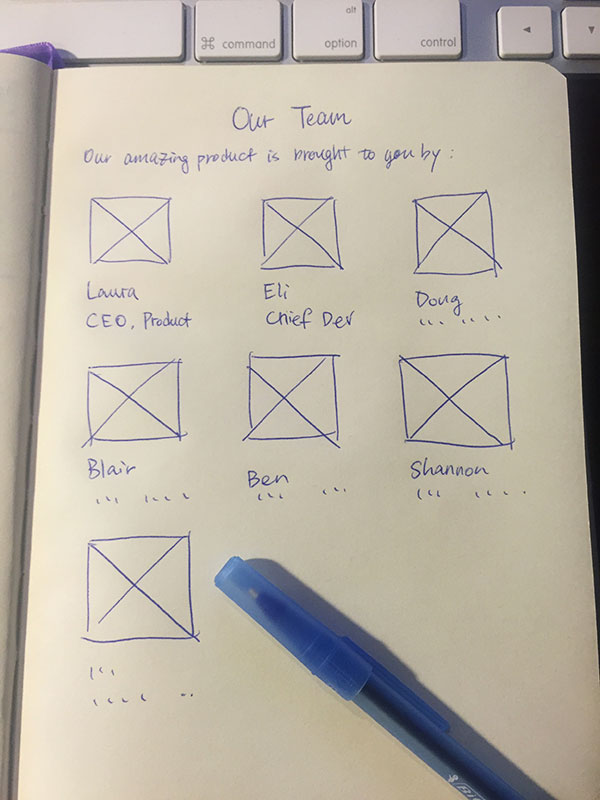 alt
⌘ command
option
control
◄
▼
Our Team
Our amazing product is brought to you by:
Laura
CEO, Product
Eli
Chief Dev
Doug
Blair
Ben
Shannon